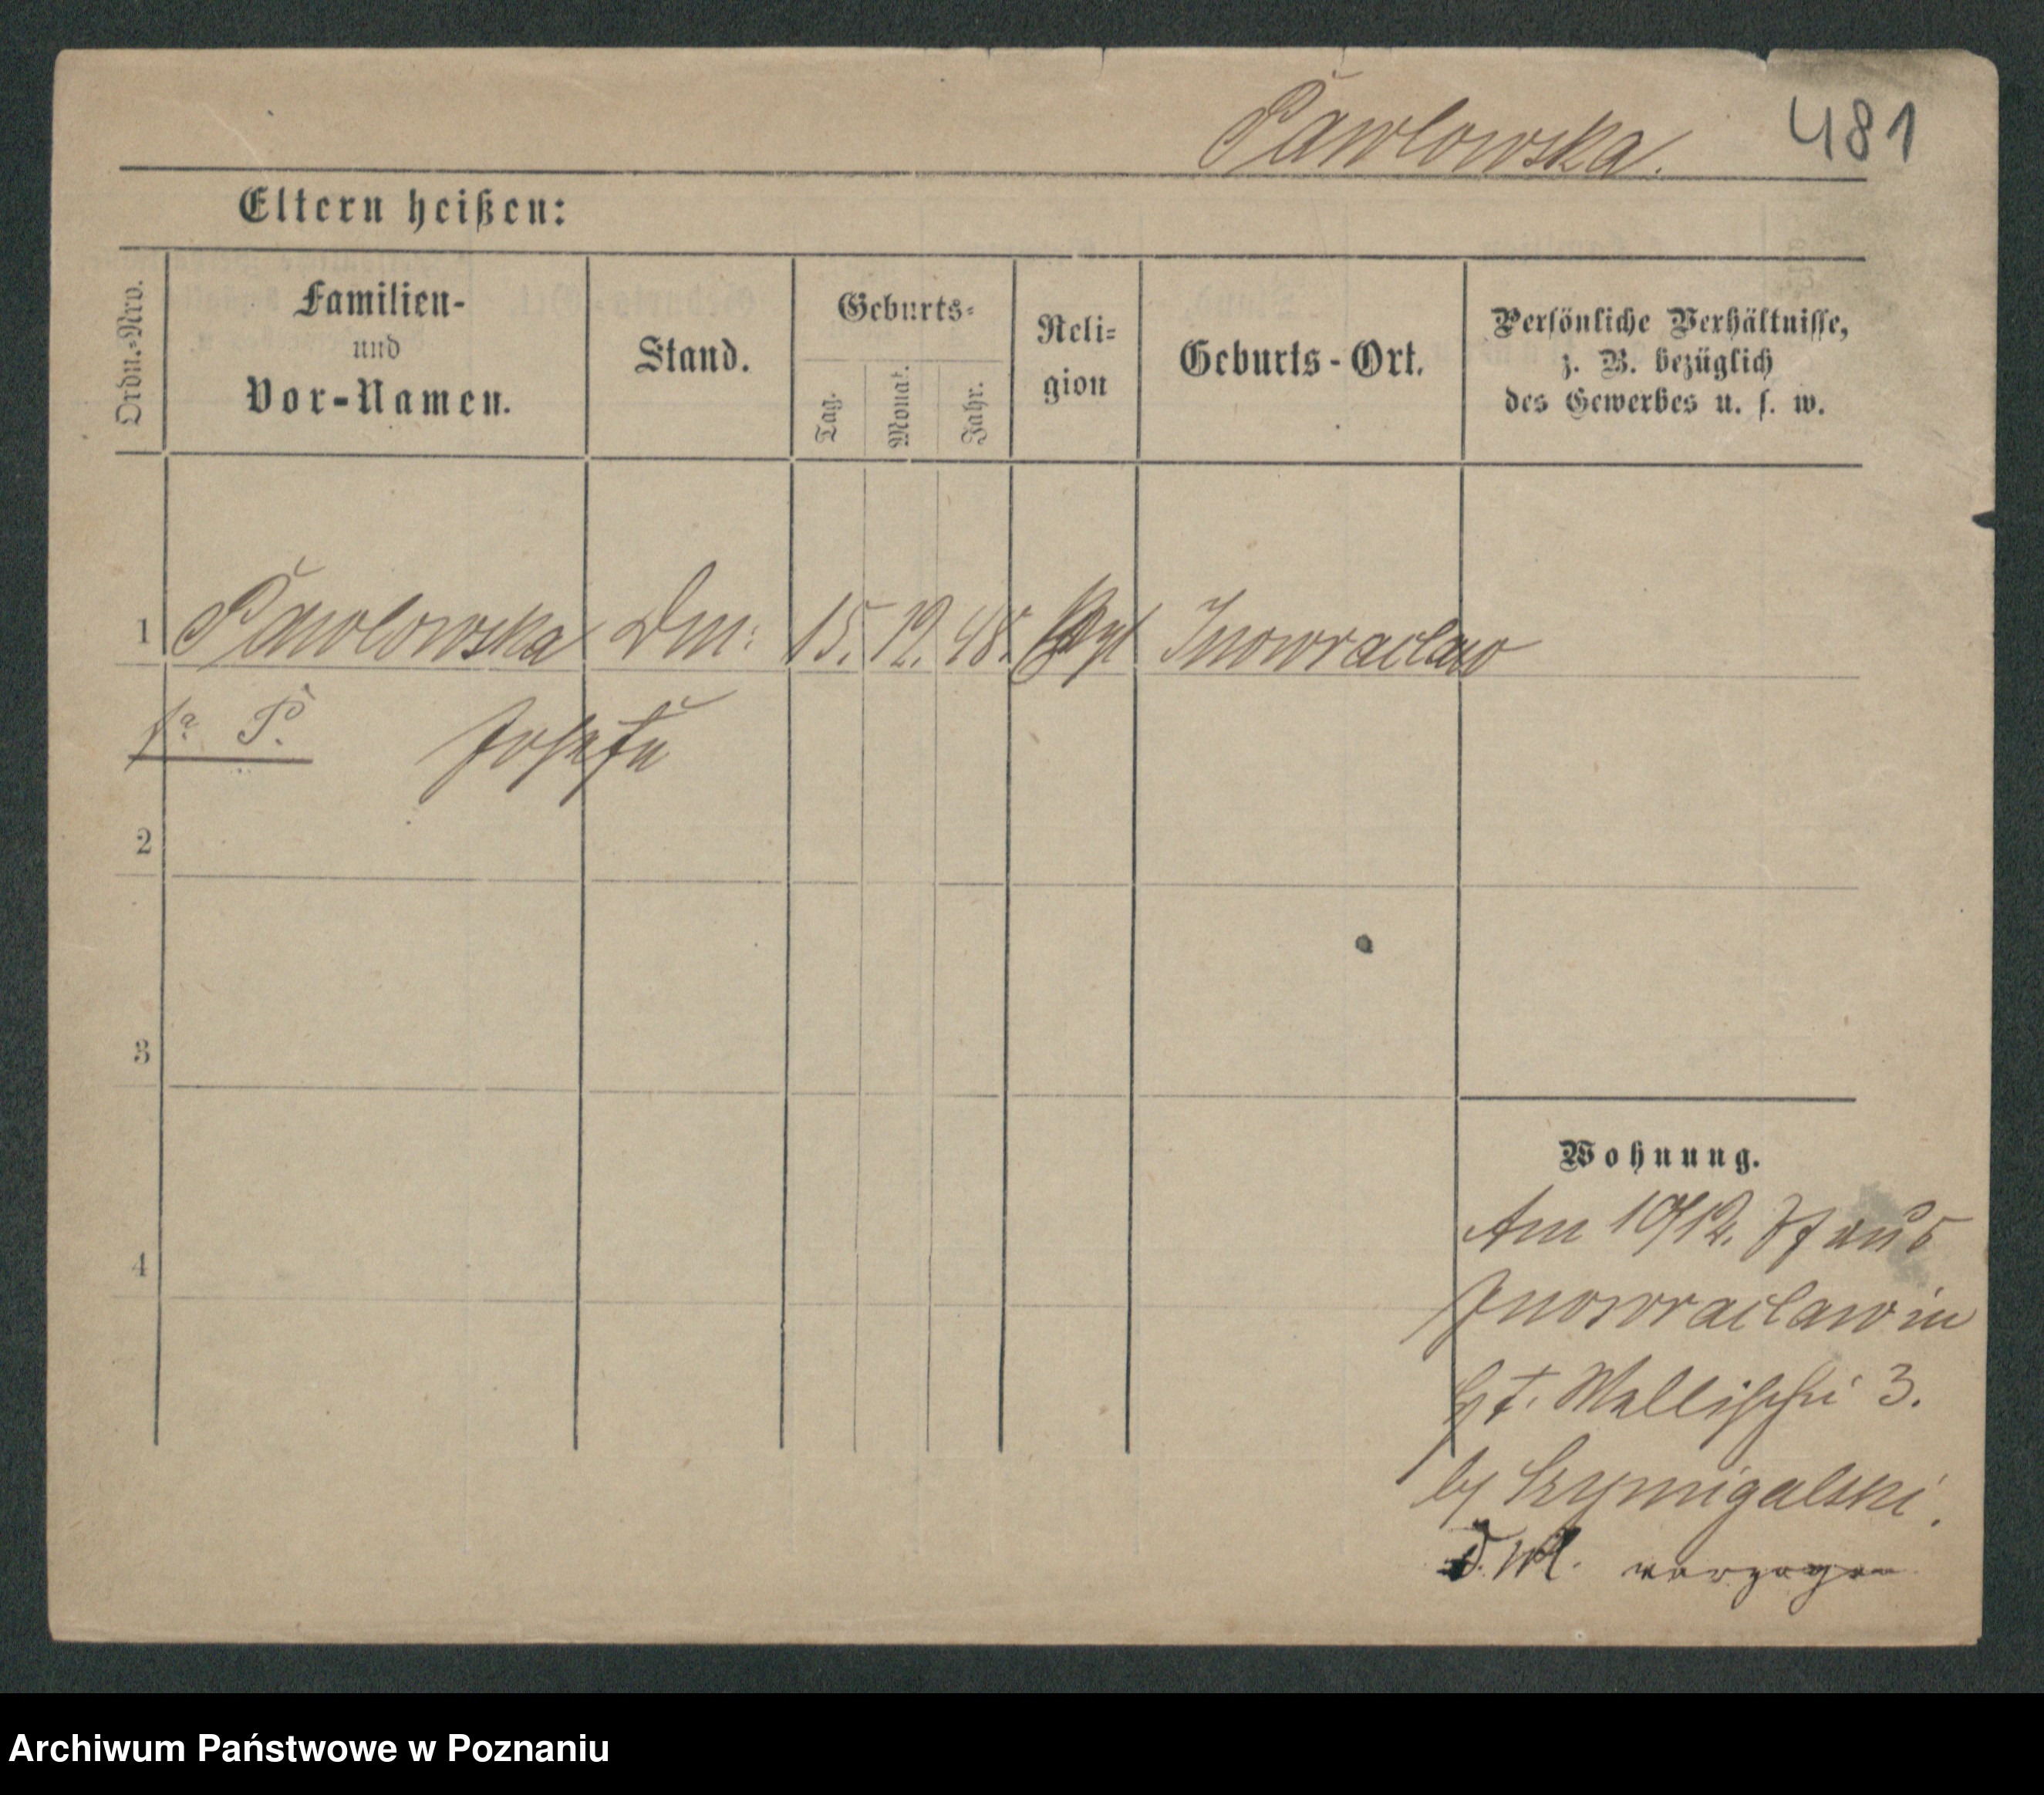 Pawlowska. 481
Eltern heißen:
Ordn.-Nro.
Familien-
und
Vor-Namen.
Stand.
Geburts-
Tag.
Monat.
Jahr.
Reli-
gion
Geburts-Ort.
Persönliche Verhältnisse,
z. B. bezüglich
des Gewerbes u. s. w.
1 Pawlowska 15. 12. 48. Inowraclaw
P. Josefa
2
3
4
Wohnung.
Am 10/12. aus
Inowraclaw in
Wallischei 3.
verzogen
Archiwum Państwowe w Poznaniu